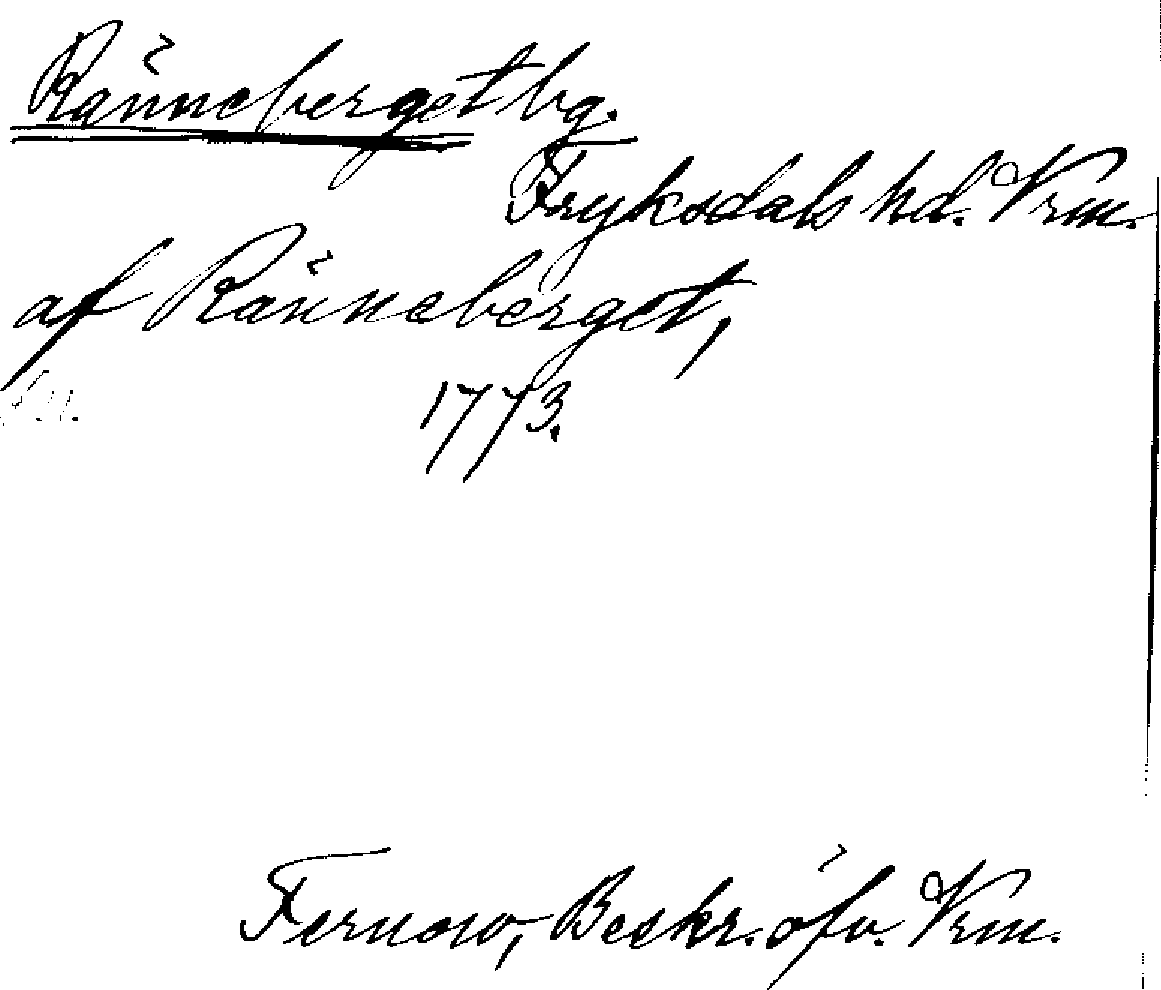 Ränneberget bg.
Fryksdals hd. Vrm.
af Ränneberget,
1773.
Fernow, Beskr. öfv. Vrm.